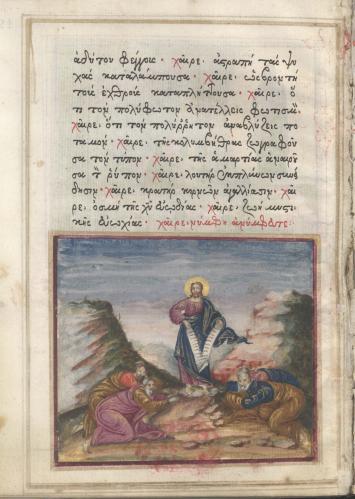 ἀδύτου φέγγους· χαῖρε, ἀστραπὴ τὰς ψυ
χὰς καταλάμπουσα· χαῖρε, ὡς βροντὴ
τοὺς ἐχθροὺς καταπλήττουσα· χαῖρε, ὅ
τι τὸν πολύφωτον ἀνατέλλεις φωτισμὸν·
χαῖρε, ὅτι τὸν πολύρρητον ἀναβλύζεις πο
ταμόν· χαῖρε, τῆς κολυμβήθρας ζωγραφοῦ
σα τὸν τύπον· χαῖρε, τῆς ἁμαρτίας ἀναιροῦ
σα τὸν ῥύπον· χαῖρε, λουτὴρ ἐκπλύνων συνεί
δησιν· χαῖρε, κρατὴρ κιρνῶν ἀγαλλίασιν· χαῖ
ρε, ὀσμὴ τῆς χυ εὐωδίας· χαῖρε, ζωὴ μυστι
κῆς εὐωχίας· χαῖρε νύμφη ἀνύμφευτε·